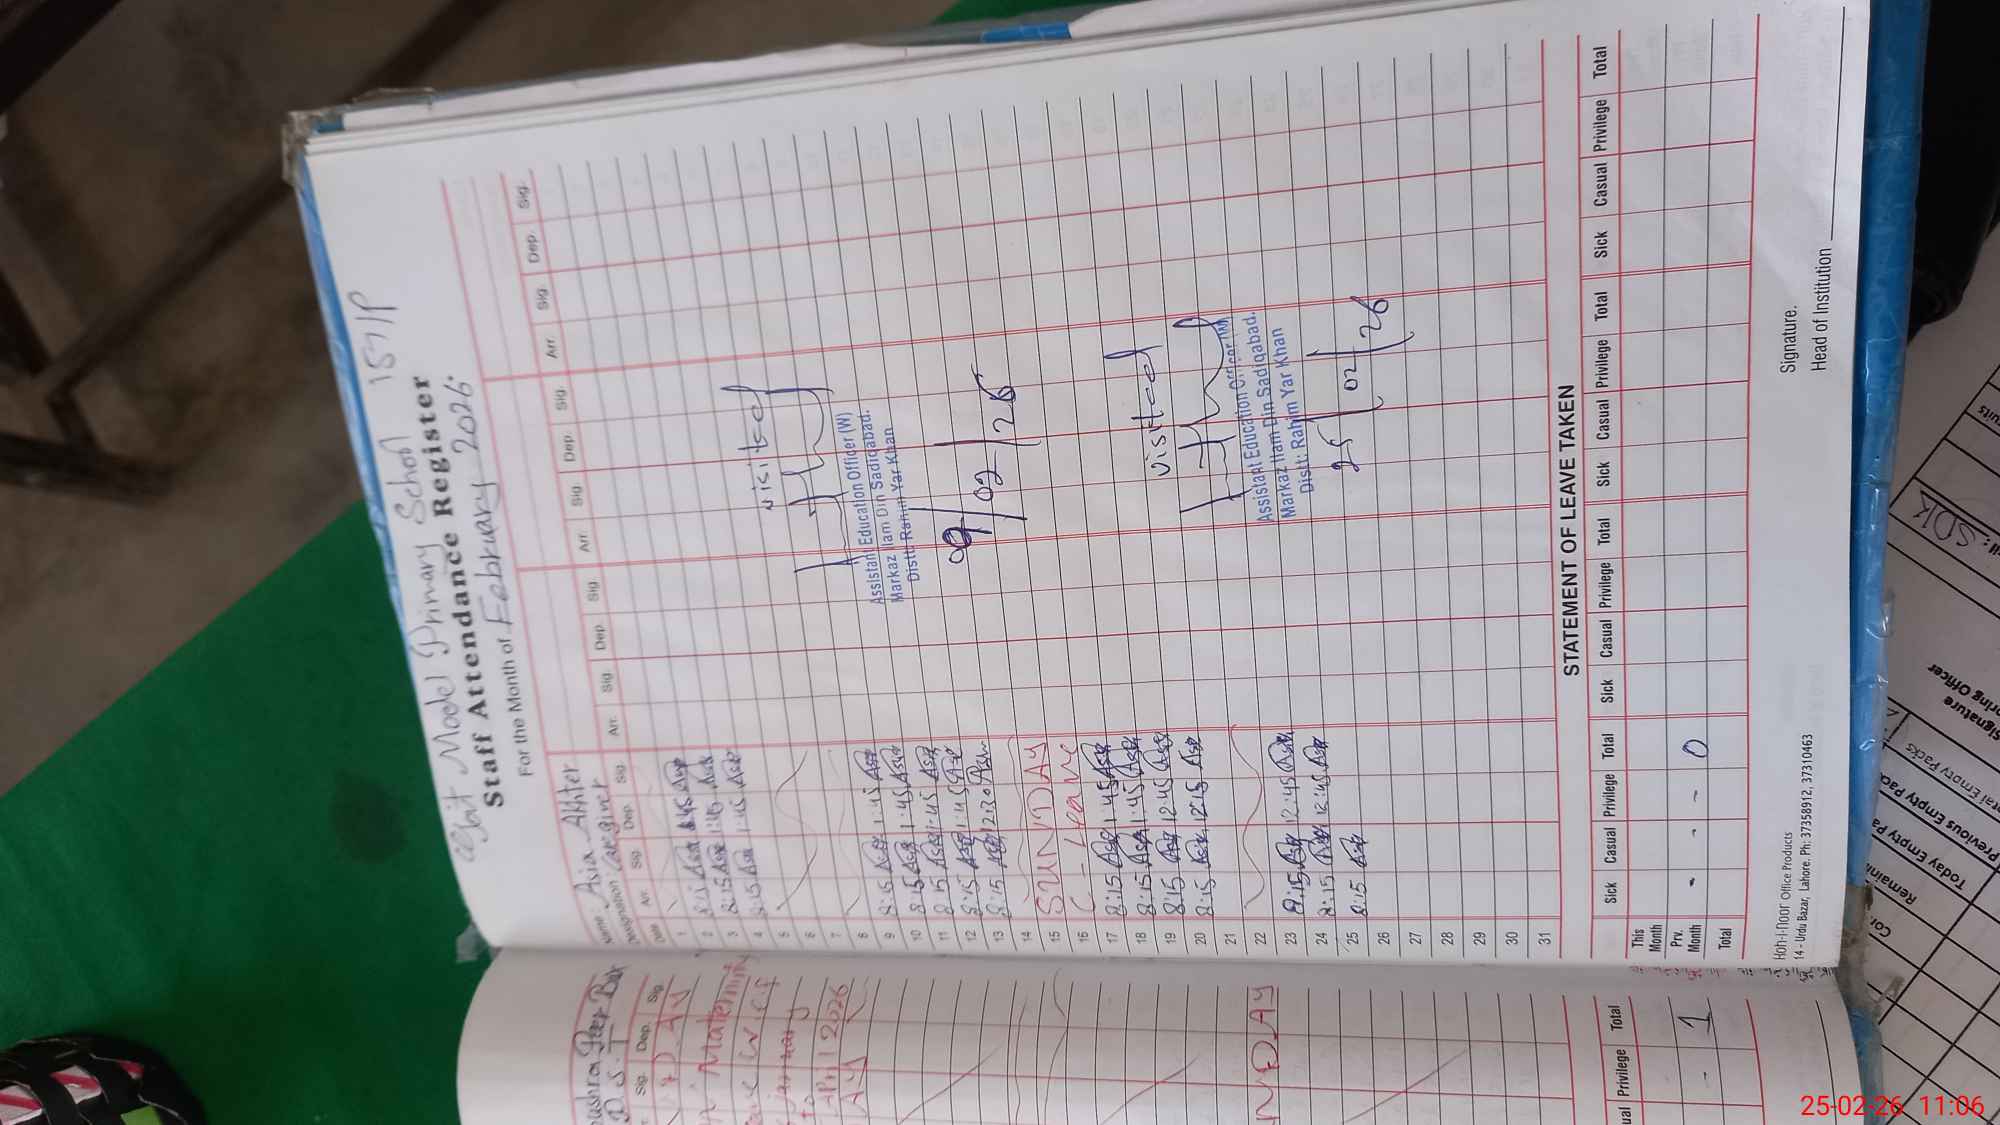 Model Primary School 157/P
Staff Attendance Register
For the Month of February 2026.
Name Asia Akhter
Designation: Caregiver
Date Arr. Sig. Dep. Sig. Arr. Sig. Dep. Sig. Arr. Sig. Dep. Sig. Arr. Sig. Dep. Sig.
1
2 8:15 1:45
3 8:15 1:45
4 8:15 1:45
5
6
7
8
9 8:15 1:45
10 8:15 1:45
11 8:15 1:45
12 8:15 1:45
13 8:15 12:30
14
15 SUNDAY
16 C - Leave
17 8:15 1:45
18 8:15 1:45
19 8:15 12:45
20 8:15 12:15
21
22
23 8:15 12:45
24 8:15 12:45
25 8:15
26
27
28
29
30
31
visited
Assistant Education Officer (W)
Markaz Ilam Din Sadiqabad.
Distt: Rahim Yar Khan
09/02/26
visited
Assistant Education Officer (W)
Markaz Ilam Din Sadiqabad.
Distt: Rahim Yar Khan
25/02/26
STATEMENT OF LEAVE TAKEN
Sick Casual Privilege Total Sick Casual Privilege Total Sick Casual Privilege Total Sick Casual Privilege Total
This Month
Prv. Month - - - 0
Total
Signature.
Head of Institution
Koh-i-noor Office Products
14 - Urdu Bazar, Lahore. Ph: 37358912, 37310463
D.S.T
Sig. Dep. Sig.
Maternity
Leave
January
to
April 2026
SUNDAY
Privilege Total
- 1
SDK
Signature
Total Empty Packs
Previous Empty Pack
Today Empty Pa
Remaini
25-02-26 11:06